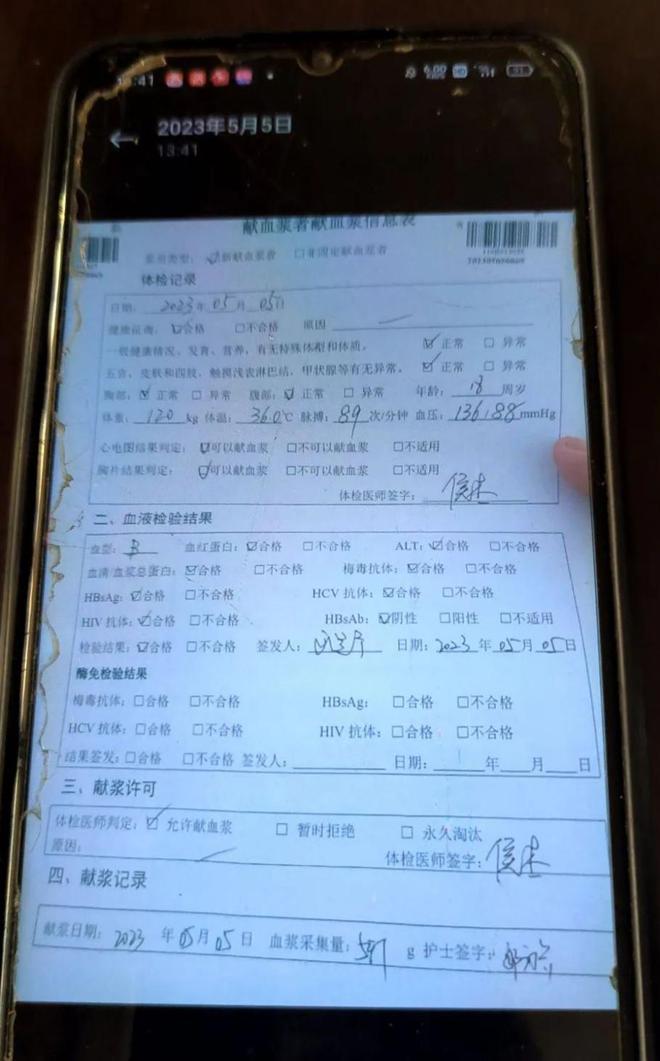 13:41
2023年5月5日
13:41
献血浆者献血浆信息表
☑新献血浆者 □非固定献血浆者
体检记录
日期: 2023年05月05日
健康征询: ☑合格 □不合格 原因
一般健康情况、发育、营养,有无特殊体型和体质。 ☑正常 □异常
五官、皮肤和四肢,触摸浅表淋巴结、甲状腺等有无异常。 ☑正常 □异常
胸部: ☑正常 □异常 腹部: ☑正常 □异常 年龄: 18 周岁
体重: 120 kg 体温: 36.0℃ 脉搏: 89 次/分钟 血压: 136/88 mmHg
心电图结果判定: ☑可以献血浆 □不可以献血浆 □不适用
胸片结果判定: ☑可以献血浆 □不可以献血浆 □不适用
体检医师签字:
二、血液检验结果
血型: B 血红蛋白: ☑合格 □不合格 ALT: ☑合格 □不合格
血清/血浆总蛋白: ☑合格 □不合格 梅毒抗体: ☑合格 □不合格
HBsAg: ☑合格 □不合格 HCV 抗体: ☑合格 □不合格
HIV 抗体: ☑合格 □不合格 HBsAb: ☑阴性 □阳性 □不适用
检验结果: ☑合格 □不合格 签发人: 日期: 2023年05月05日
酶免检验结果
梅毒抗体: □合格 □不合格 HBsAg: □合格 □不合格
HCV 抗体: □合格 □不合格 HIV 抗体: □合格 □不合格
结果签发: □合格 □不合格 签发人: 日期: 年 月 日
三、献浆许可
体检医师判定: ☑允许献血浆 □ 暂时拒绝 □ 永久淘汰
原因:
体检医师签字:
四、献浆记录
献浆日期: 2023年05月05日 血浆采集量: g 护士签字: